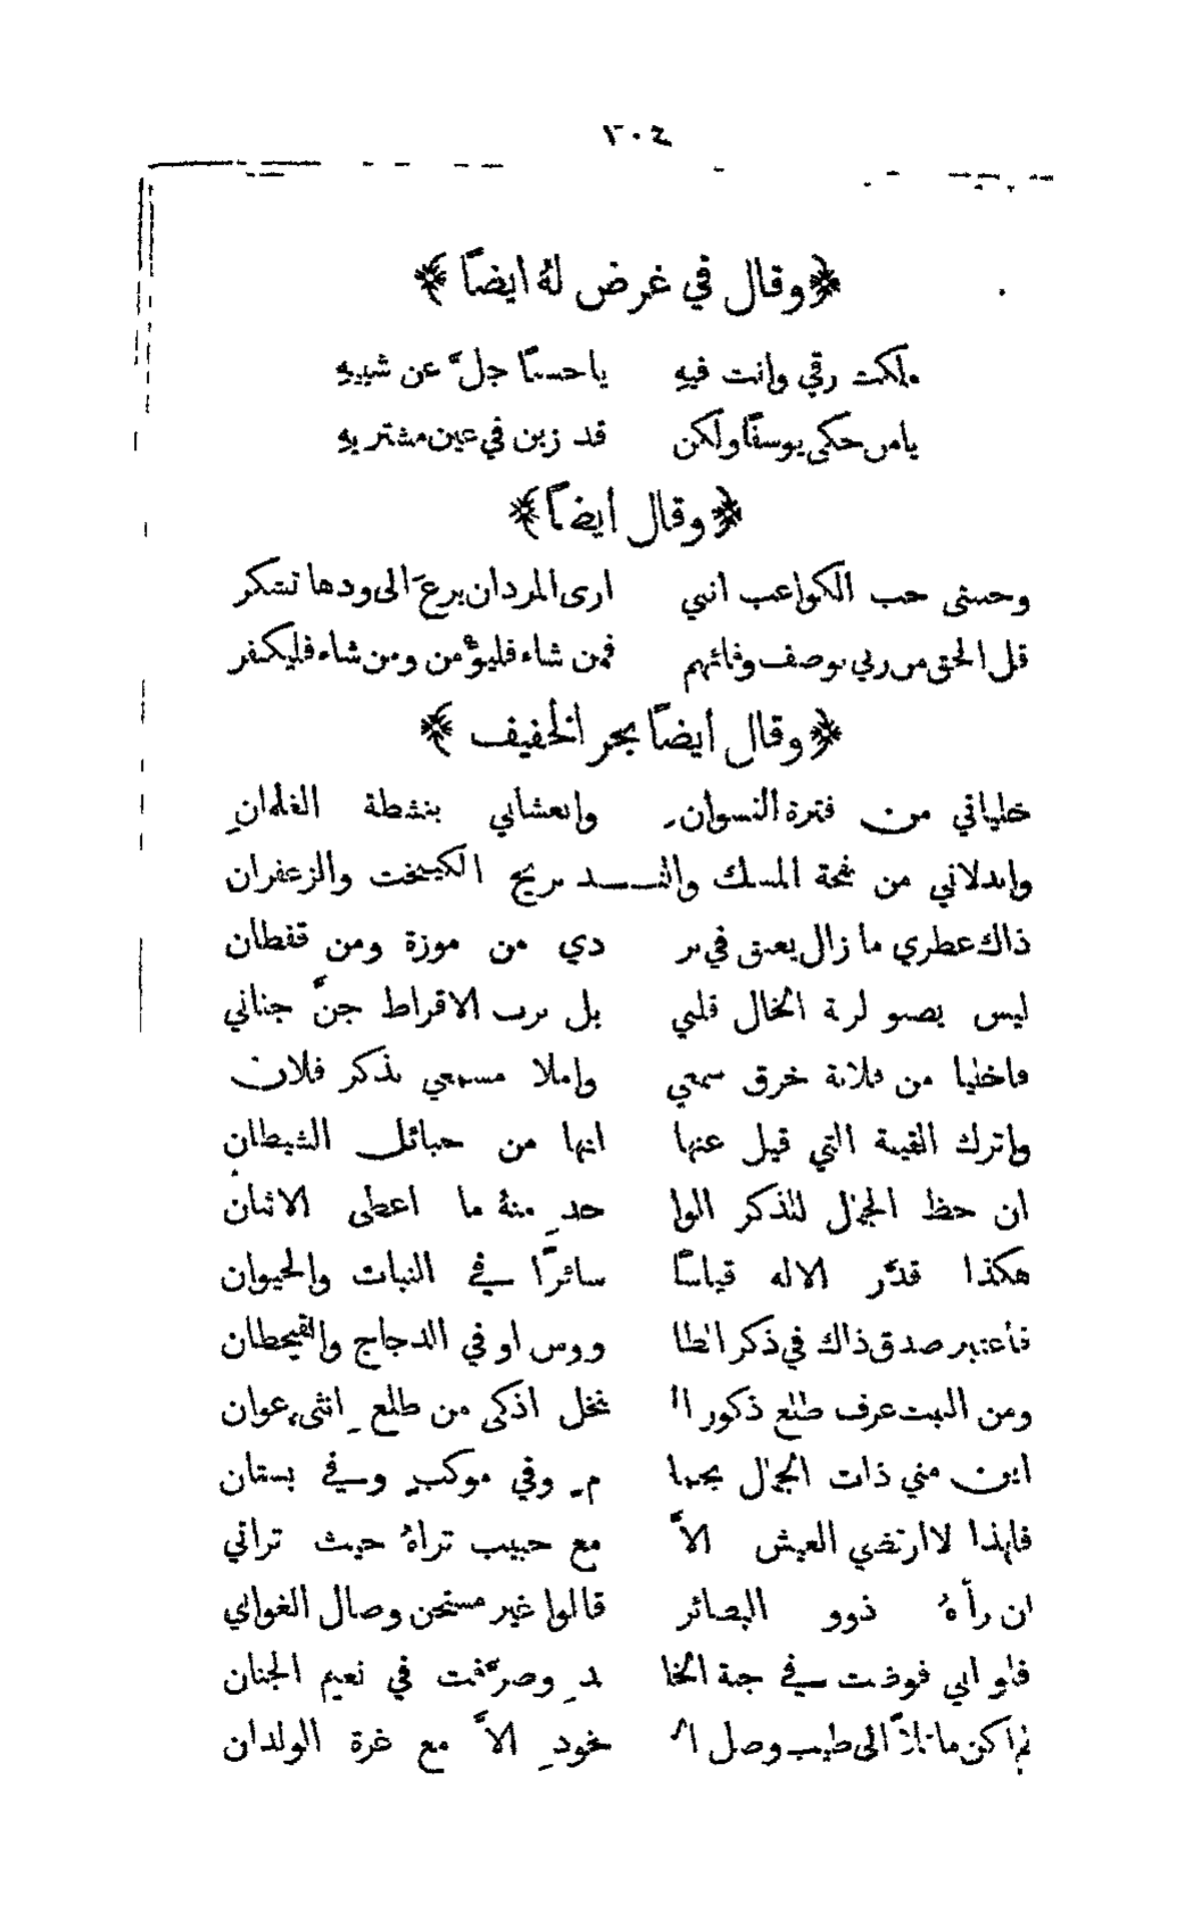 ٣٠٤
﴿وقال في غرض لهُ ايضاً﴾
ملكت رقي وانت فيهِ ياحسنًا جلَّ عن شبيهِ
يامن حكى يوسفًا ولكن قد زين في عين مشتريهِ
﴿وقال أيضاً﴾
حب الكواعب انني ارى المردان الى ودها تشكر
قل الحق من ربي بوصف وفائهم فمن شاء فليؤمن ومن شاء فليكفر
﴿وقال أيضاً بحر الخفيف﴾
خلياني من فترة النسوانِ وانعشاني بنشطة الغلمانِ
وابدلاني من نفحة المسك والنـــد بريح الكيمخت والزعفران
ذاك عطري ما زال يعبق في بر دي من موزة ومن قفطان
ليس يصبو لربة الخال قلبي بل برب الاقراط جنَّ جناني
فاخليا من فلانة خرق سمعي واملا مسمعي بذكر فلان
واترك القينة التي قيل عنها انها من حبائل الشيطان
ان حظ الجمال للذكر الوا حدِ منهُ ما اعطى الاثنان
هكذا قدَّر الاله قياسًا سائرًا في النبات والحيوان
فأعتبر صدق ذاك في ذكر الطا ووس او في الدجاج والقيحطان
ومن عرف طلع ذكور ال نخل اذكى من طلعِ انثى عوان
اين مني ذات الجمال بحما مٍ وفي موكبٍ وفي بستان
فلهذا لا ارتضي العيش الاَّ مع حبيب تراهُ حيث تراني
ان رأهُ ذوو البصائر قالوا غير مستحن وصال الغواني
فلو اني فوضت في جنة الخا لدِ وصرَّفت في نعيم الجنان
لم اكن مائلاً الى طيب وصل ال خودِ الاَّ مع غرة الولدان